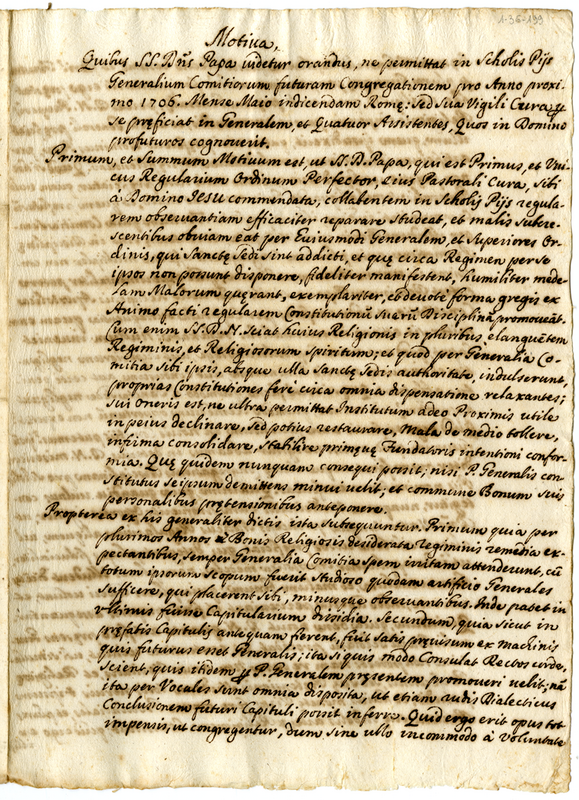 1-36-199
Motiua,
Quibus SS. Dñs Papa videtur orandus, ne permittat in Scholis Pijs
Generalium Comitiorum futuram Congregationem pro Anno proxi-
mo 1706. Mense Maio indicendam Romę: Sed Sua Vigili Cura
se pręficiat in Generalem, et Quatuor Assistentes, Quos in Domino
profuturos cognouerit.
Primum, et Summum Motiuum est, ut S. D. Papa, qui est Primus, et Vni-
cus Regularium Ordinum Perfector, Eius Pastorali Cura, Sibi
à Domino Iesu commendata, collabentem in Scholis Pijs regula-
rem obseruantiam efficaciter reparare Studeat, et malis Subcre-
scentibus obuiam eat per Euiusmodi Generalem, et Superiores Or-
dinis, qui Sanctę Sedi Sint addicti, et quę circa Regimen per se
ipsos non possunt disponere, fideliter manifestent, humiliter mede-
lam Malorum quęrant, exemplariter, et deuotè forma gregis ex
Animo facti regularem Constitutionũ Suarũ Disciplinã promoueãt.
Cum enim SS. D. N. Sciat huius Religionis in pluribus elanguẽtem
Regiminis, et Religiosorum Spiritum; et quod per Generalia Co-
mitia Sibi ipsis, absque ulla Sanctę Sedis authoritate, indulserunt,
proprias Constitutiones ferè circa omnia dispensatione relaxantes;
Sui Oneris est, ne ultra permittat Institutum adeo Proximis utile
in peius declinare, Sed potius restaurare, Mala de medio tollere,
infirma consolidare, Stabilire primęque Fundatoris intentioni confor-
mia. Quę quidem nunquam consequi possit; nisi P. Generalis con-
stitutus Se ipsum demittens minui velit; et commune Bonum Suis
personalibus prętensionibus anteponere.
Propterea ex his generaliter dictis ista Subsequuntur. Primum quia per
plurimos Annos à Bonis Religiosis desiderata regiminis remedia ex-
pectantibus, Semper Generalia Comitia Spem irritam attenderunt, cũ
totum ipsorum Scopum fuerit Studioso quodam artificio Generales
Sufficere, qui placerent Sibi, minusque obseruantibus. Inde patet in
Vltimis fuisse Capitularium dissidia. Secundum, quia Sicut in
pręfatis Capitulis antequam fierent, fuit Satis pręuisum ex machinis
quis futurus esset Generalis; ita Si quis modo Consulat Rectos corde,
Scient; quis itidem P. Generalem pręsentem promoueri velit; nã
ita per Vocales Sunt omnia disposita, ut etiam rudis Dialecticus
Conclusionem futuri Capituli possit inferre. Quid ergo erit opus tot
impensis, ut congregentur, dum Sine ullo incommodo à Voluntate